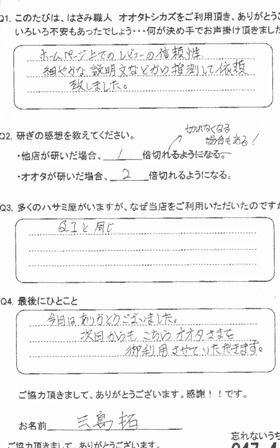 Q1. このたびは、はさみ職人 オオタトシカズをご利用頂き、ありがとうご
いろいろ不安もあったでしょう・・・何が決め手でお声掛け頂きました
ホームページ上でのレビューの信頼性
細やかな説明文などから推測して依頼
致しました。
Q2. 研ぎの感想を教えてください。
切れなくなる
場合もある！
・他店が研いだ場合、 1 倍切れるようになる。
・オオタが研いだ場合、 2 倍切れるようになる。
Q3. 多くのハサミ屋がいますが、なぜ当店をご利用いただいたのですか
Q1と同じ
Q4. 最後にひとこと
今日はありがとうございました。
次回からも こちら オオタさまを
御利用させていただきます。
ご協力頂きまして、ありがとうございます。感謝！！です。
お名前 三島 拓
忘れないうち
ご協力頂きまして、ありがとうございます。